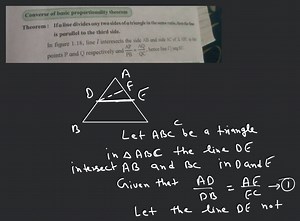 Converse of basic proportionality theorem
Theorem : If a line divides any two sides of a triangle in the same ratio, then the line
is parallel to the third side.
In figure 1.18, line l intersects the side AB and side AC of
points P and Q respectively and AP/PB = AQ/QC hence line l || seg BC
A
D
F
E
B
C
Let ABC be a triangle
in △ABC the line DE
intersect AB and BC in D and E
Given that AD/DB = AE/EC → ①
Let the line DE not